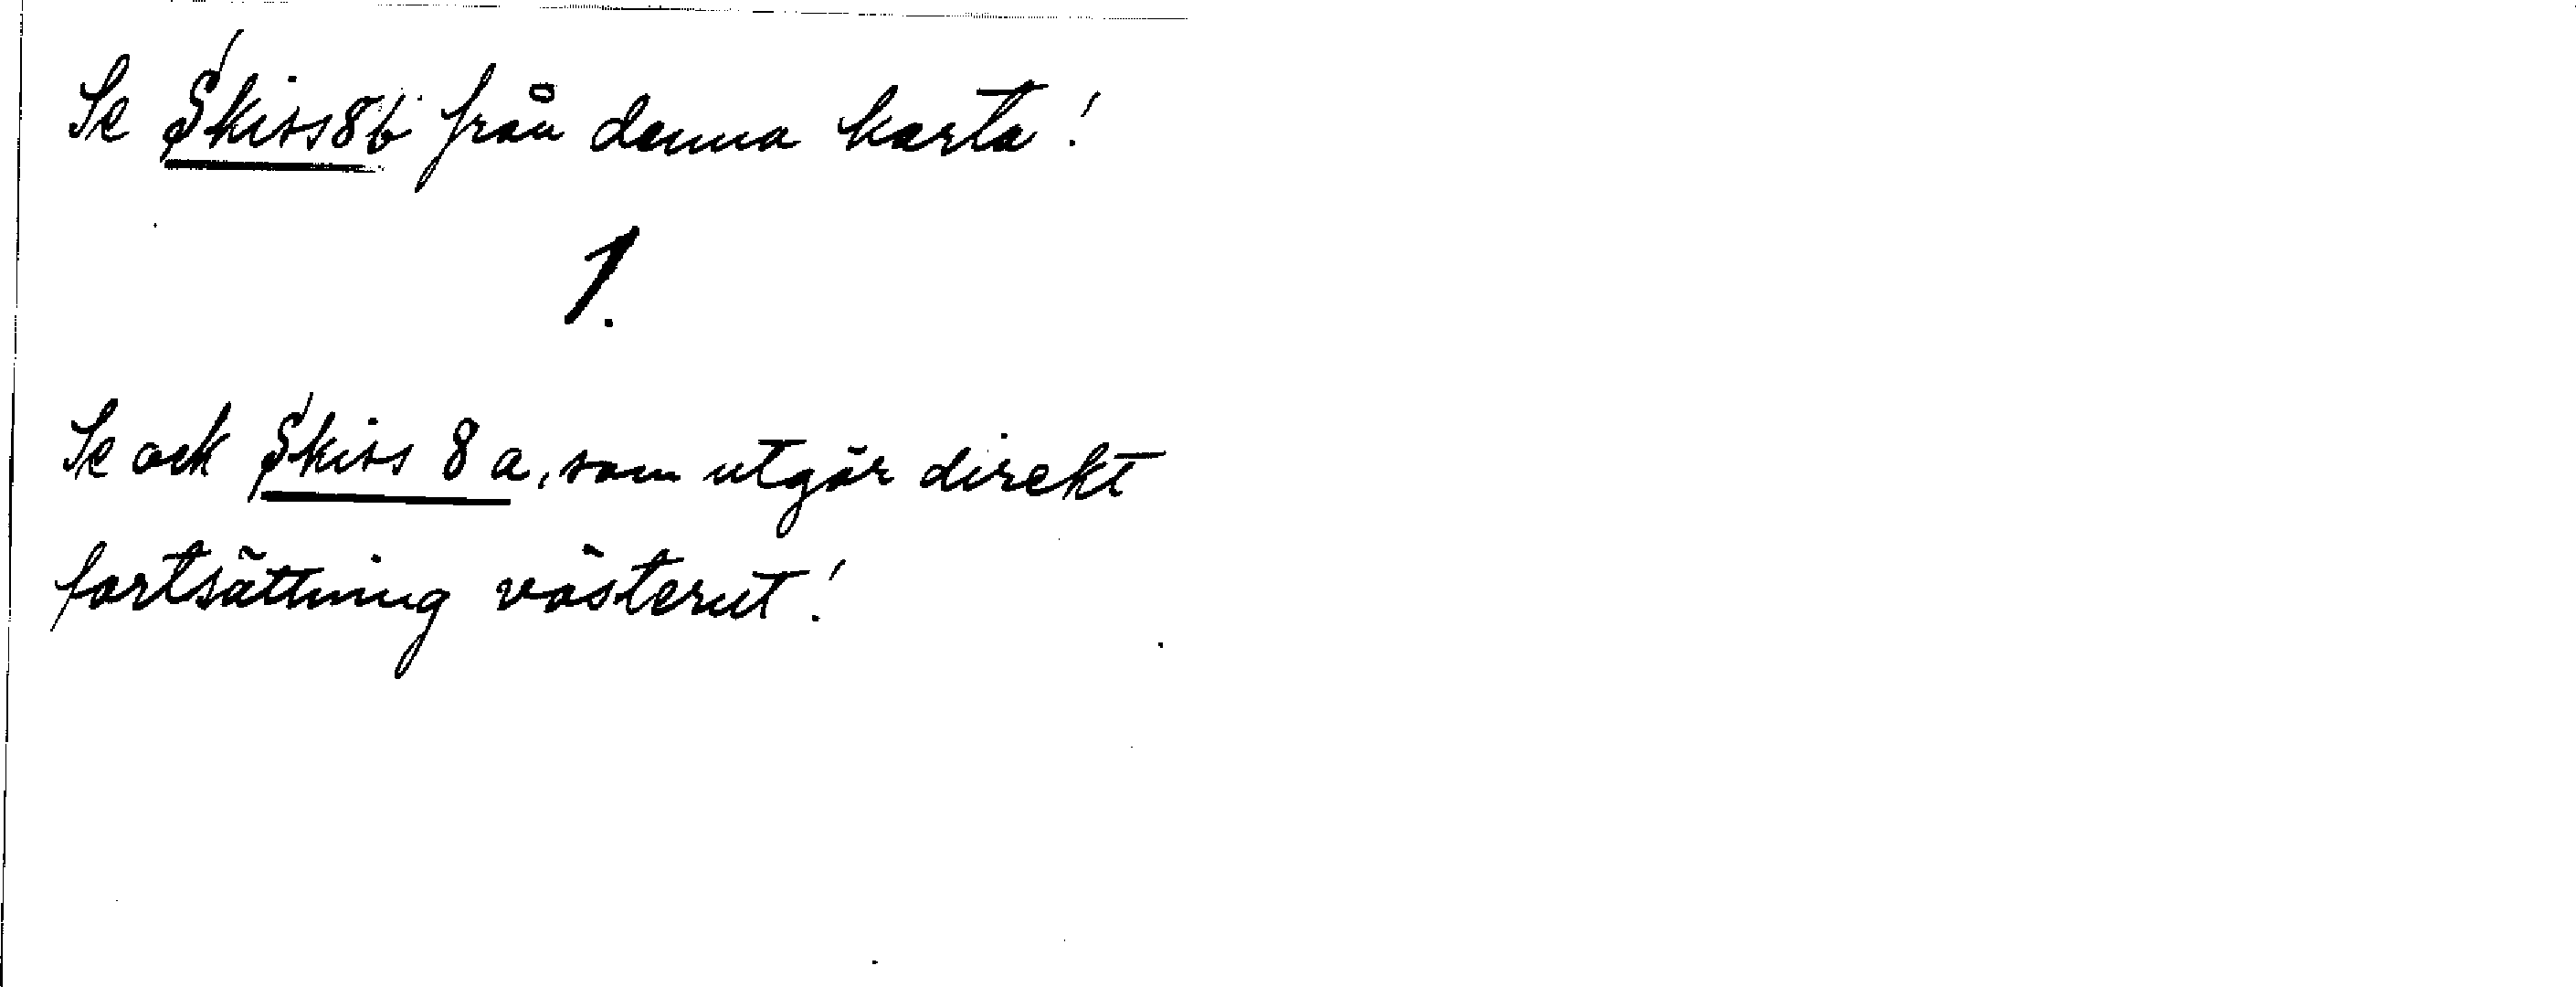 Se Skiss 8b från denna karta!
1.
Se ock Skiss 8 a, som utgör direkt
fortsättning västerut!